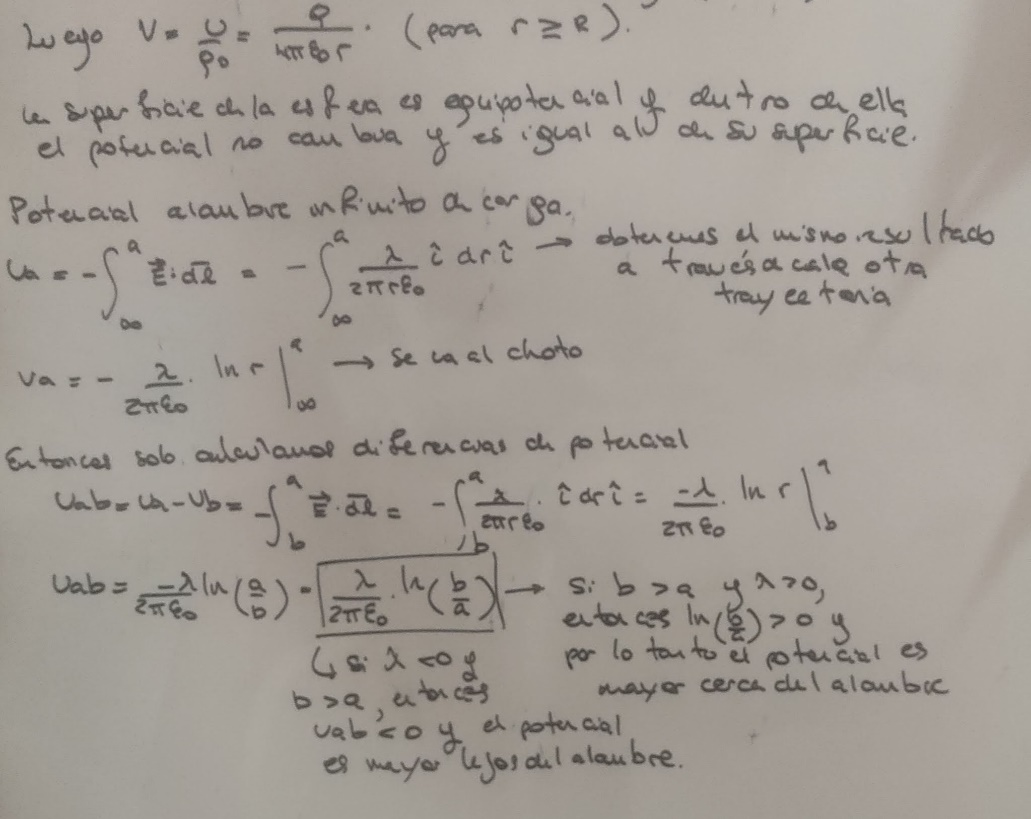 Luego V = U/q₀ = Q/4πε₀r. (para r ≥ R).
La superficie de la esfera es equipotencial y dentro de ella
el potencial no cambia y es igual al de su superficie.
Potencial alambre infinito de carga.
Va = -∫_∞^a E⃗·dl = -∫_∞^a λ/2πrε₀ î dr î → obtenemos el mismo resultado
a través de cada otra
trayectoria
Va = - λ/2πε₀ · ln r |_∞^a → se va al choto
Entonces solo calculamos diferencias de potencial
Vab = Va - Vb = -∫_b^a E⃗·dl = -∫_b^a λ/2πrε₀ · î dr î = -λ/2πε₀ · ln r |_b^a
Vab = -λ/2πε₀ ln(a/b) = λ/2πε₀ · ln(b/a) → si b > a y λ > 0,
entonces ln(b/a) > 0 y
por lo tanto el potencial es
mayor cerca del alambre
↳ si λ < 0 y
b > a, entonces
Vab < 0 y el potencial
es mayor lejos del alambre.